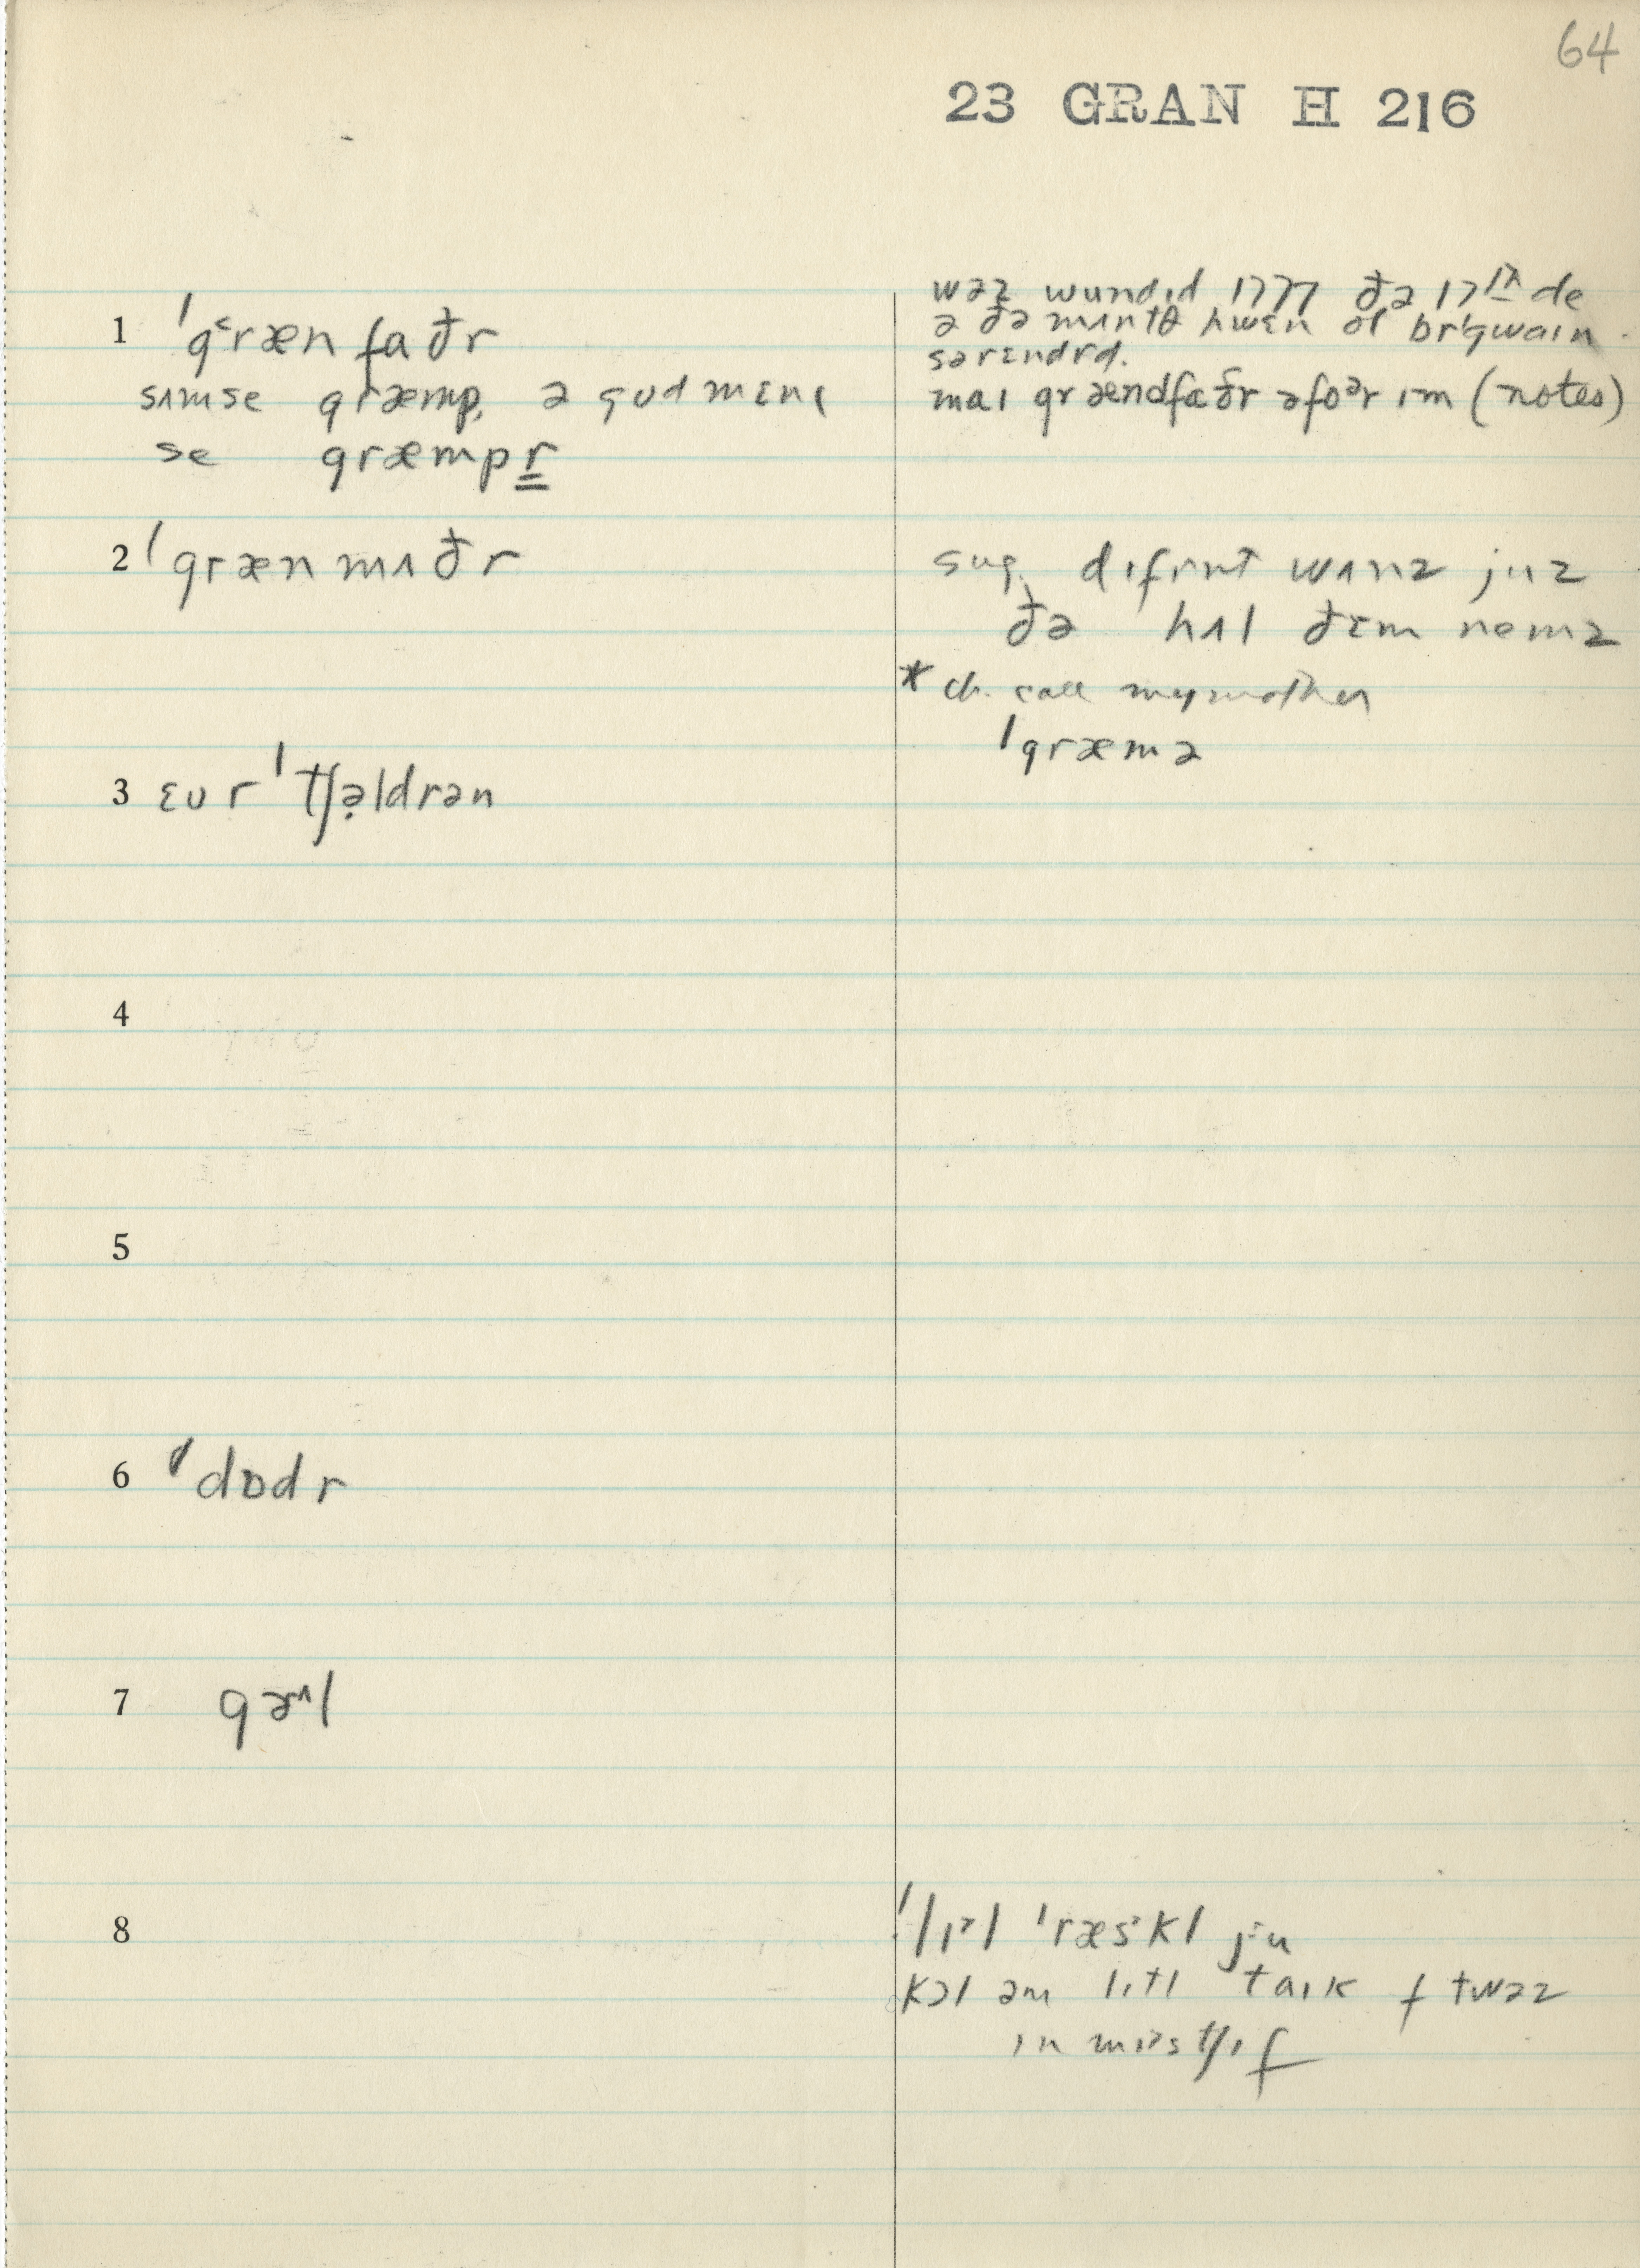 64
23 GRAN H 216
1 ˈg˂ræn faðr
sʌmse græmp, ə gud mɛnɩ
se græmpr
wəz wundɩd 1777 ðə 17th de
ə ðə mʌntθ hwɛn ol brˈgwain
sərɛndrd.
maɩ grændfaðr əfoᵊr ɩm (notes)
2 ˈgræn mʌðr
sug. dɩfrnt wʌnz juz
ðə hʌl ðɛm nemz
* ch. call my mother
ˈgræmə
3 ɛur ˈtʃə̣ldrən
4
5
6 ˈdɒdr
7 gɚ^l
8
ˈlɩᵊl ˈræskl ju
kɔl əm lɩtl taɩk ɩf twəz
ɩn mɩstʃɩf